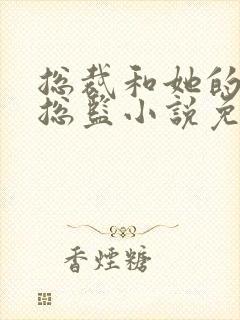 总裁和她的
总监小说免
香烟糖